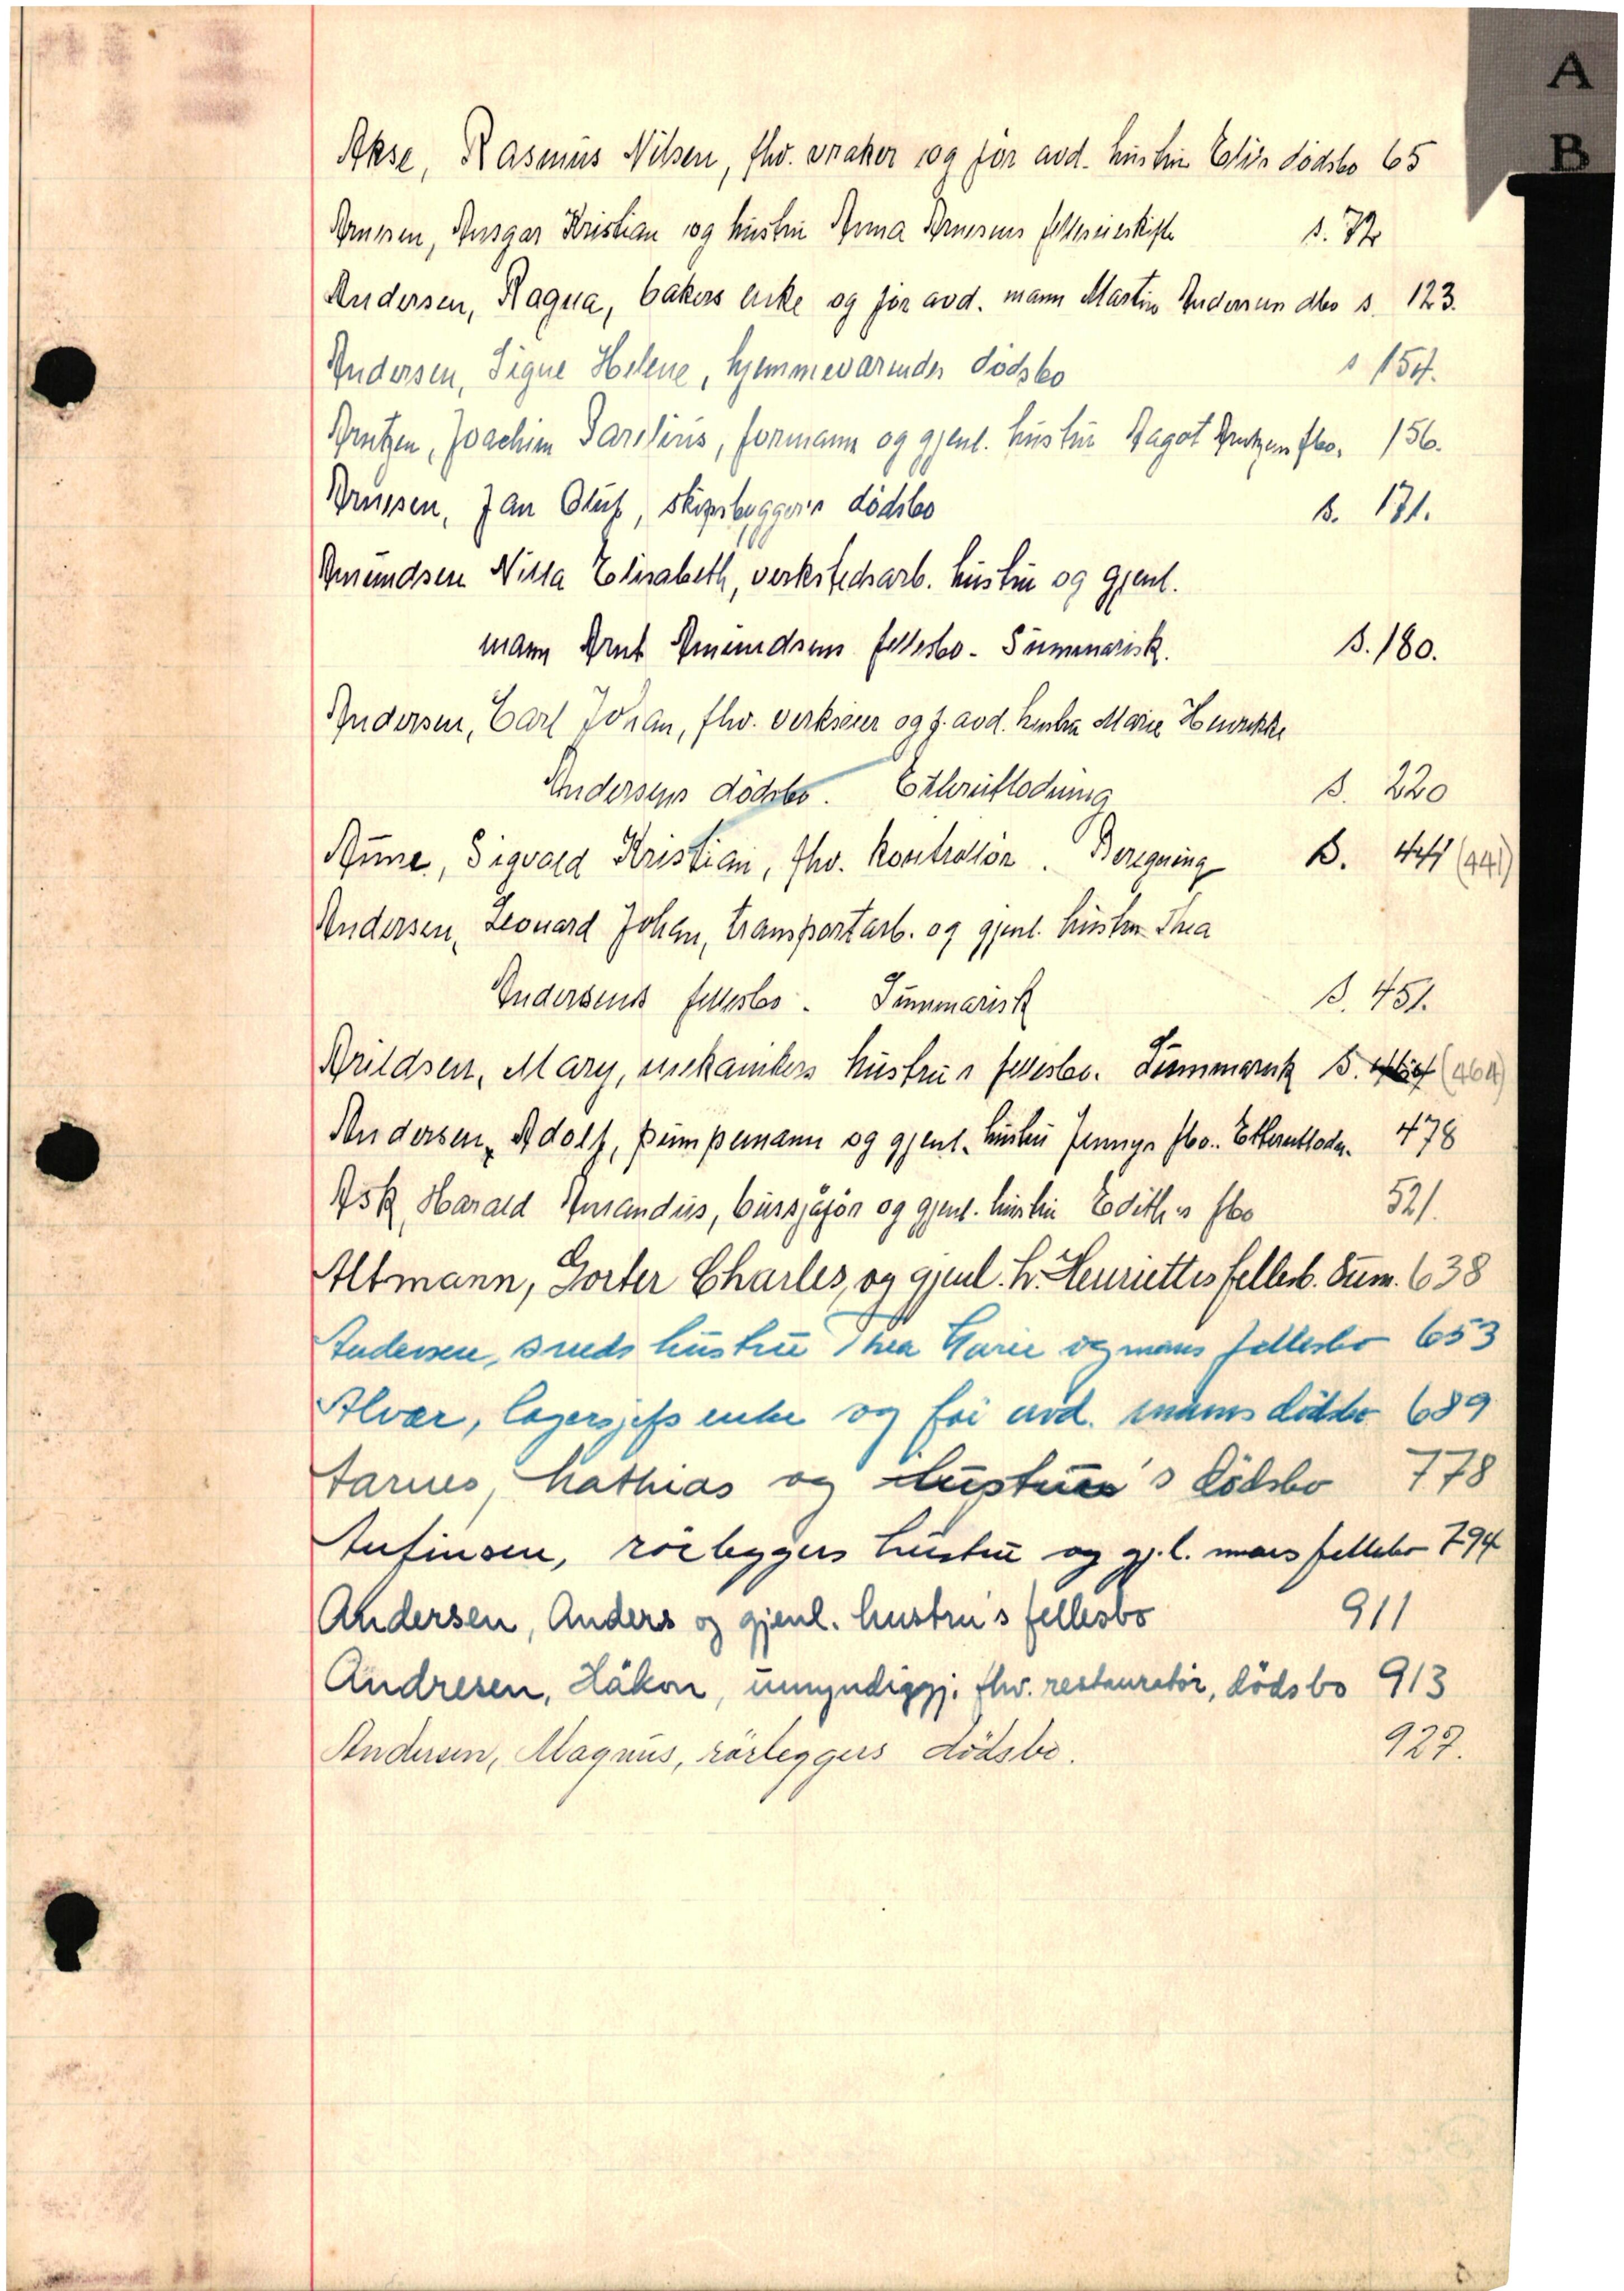 A
B
Akse, Rasmus Nilsen, fhv. vraker og før avd. hustru Elis dødsbo 65
Arnesen, Ansgar Kristian og hustru Anna Arnesens felleseieskifte s. 72
Andersen, Ragna, bakers enke og før avd. mann Martin Andersens dbo s. 123.
Andersen, Signe Helene, hjemmeværendes dødsbo s 154.
Arntzen, Joachim Parelius, formann og gjenl. hustru Aagot Arntzens fbo. 156.
Arnesen, Jan Oluf, skipsbyggers dødsbo s. 171.
Amundsen Nilla Elisabeth, verkstedsarb. hustru og gjenl.
mann Arnt Amundsens fellesbo - Summarisk. s. 180.
Andersen, Carl Johan, fhv. verkseier og f. avd. hustru Marie Henrikke
Andersens dødsbo. Etterutlodning s. 220
Aune, Sigvald Kristian, fhv. kontrollør. Beregning s. 441 (441)
Andersen, Leonard Johan, transportarb. og gjenl. hustru Thea
Andersens fellesbo. Summarisk s. 451.
Arildsen, Mary, mekanikers hustru s fellesbo. Summarisk s. (464)
Andersen, Adolf, pumpemann og gjenl. hustru Jennys fbo. Etterutlodn. 478
Ask, Harald Amandus, bussjåfør og gjenl. hustru Edith s fbo 521.
Altmann, Gorter Charles, og gjenl. h. Henriettes fellesb. Sum. 638
Andersen, smeds hustru Thea Marie og manns fellesbo 653
Alvær, lagersjefs enke og før avd. manns dødsbo 689
Aarnes, Mathias og hustrues dødsbo 778
Anfinsen, rørleggers hustru og gj.l. manns fellesbo 794
Andersen, Anders og gjenl. hustru's fellesbo 911
Andresen, Håkon, umyndiggj. fhv. restauratør, dödsbo 913
Andersen, Magnus, rørleggers dödsbo. 927.